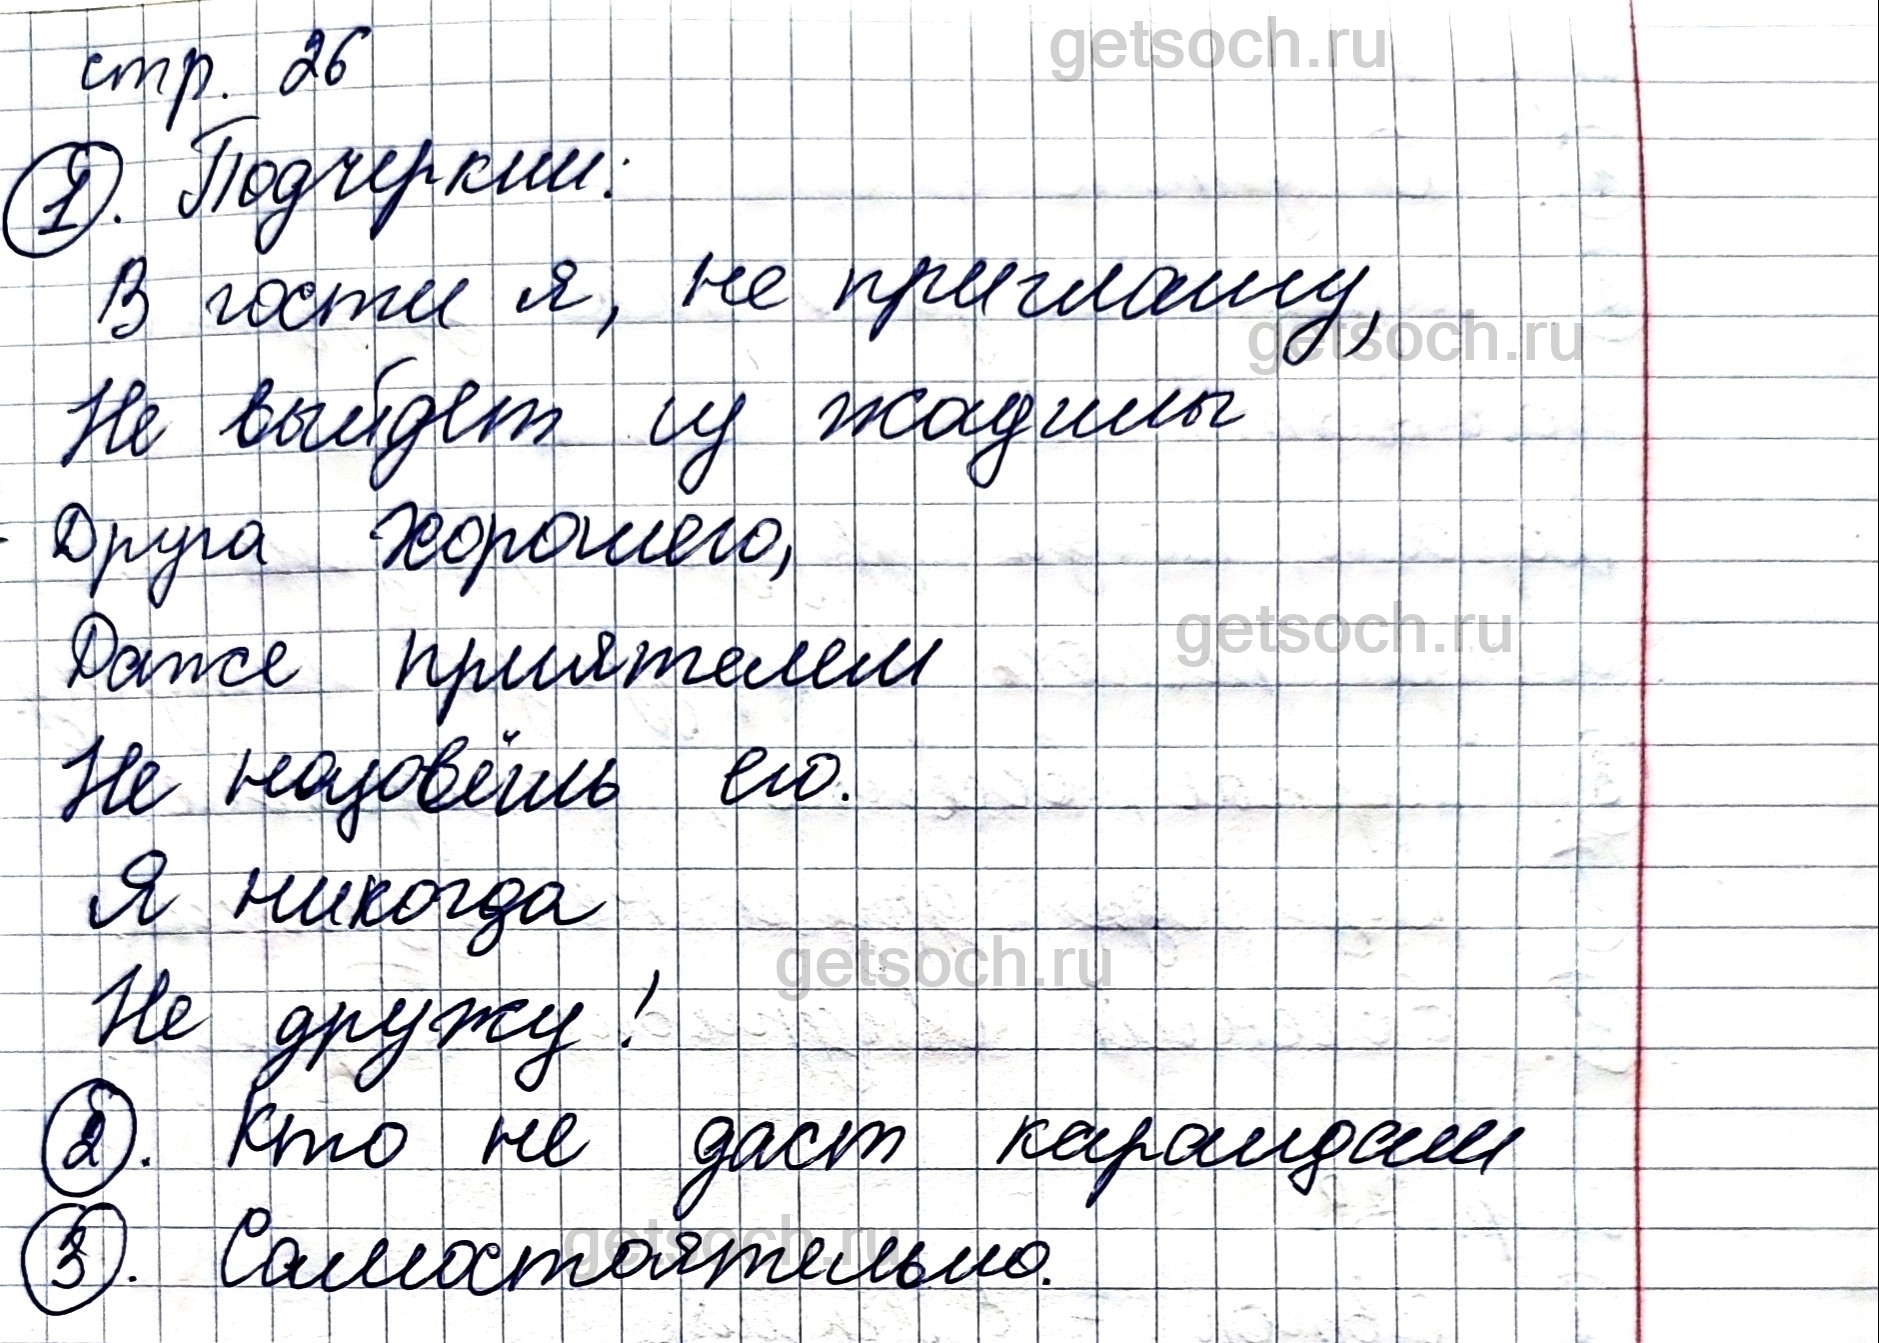 стр. 26
getsoch.ru
1. Подчеркни:
В гости я, не приглашу,
getsoch.ru
Не выйдет из жадины
Друга хорошего,
getsoch.ru
Даже приятелем
Не назовёшь его.
Я никогда
getsoch.ru
Не дружу!
2. Кто не даст карандаш
getsoch.ru
3. Самостоятельно.